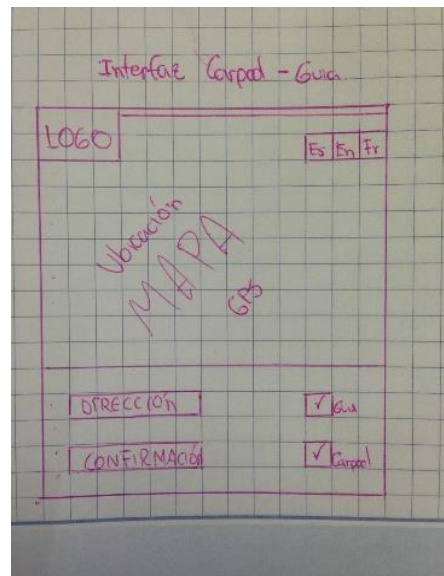 Interfaz Carpool - Guia
LOGO
Es En Fr
Ubicación
MAPA
GPS
DIRECCIÓN ✓ Guia
CONFIRMACIÓN ✓ Carpool